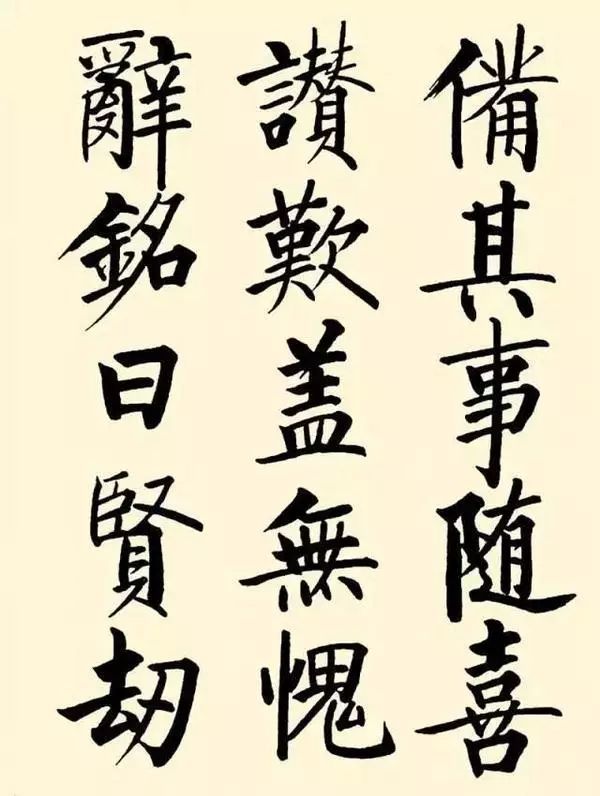 備其事随喜
讃歎盖無愧
辭銘曰賢劫